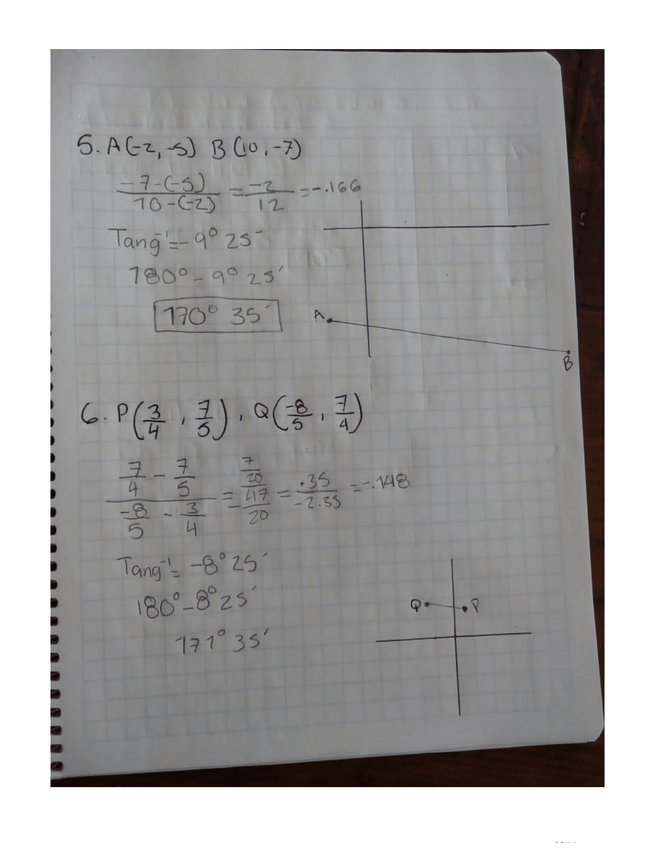 5. A(-2, -5) B(10, -7)
-7-(-5) / 10-(-2) = -2 / 12 = -.166
Tang⁻¹= -9° 25´
180° - 9° 25´
170° 35´
A
B
6. P(3/4 , 7/5) , Q(-8/5 , 7/4)
7/4 - 7/5 / -8/5 - 3/4 = 7/20 / -47/20 = .35 / -2.35 = -.148
Tang⁻¹= -8° 25´
180° - 8° 25´
171° 35´
Q P